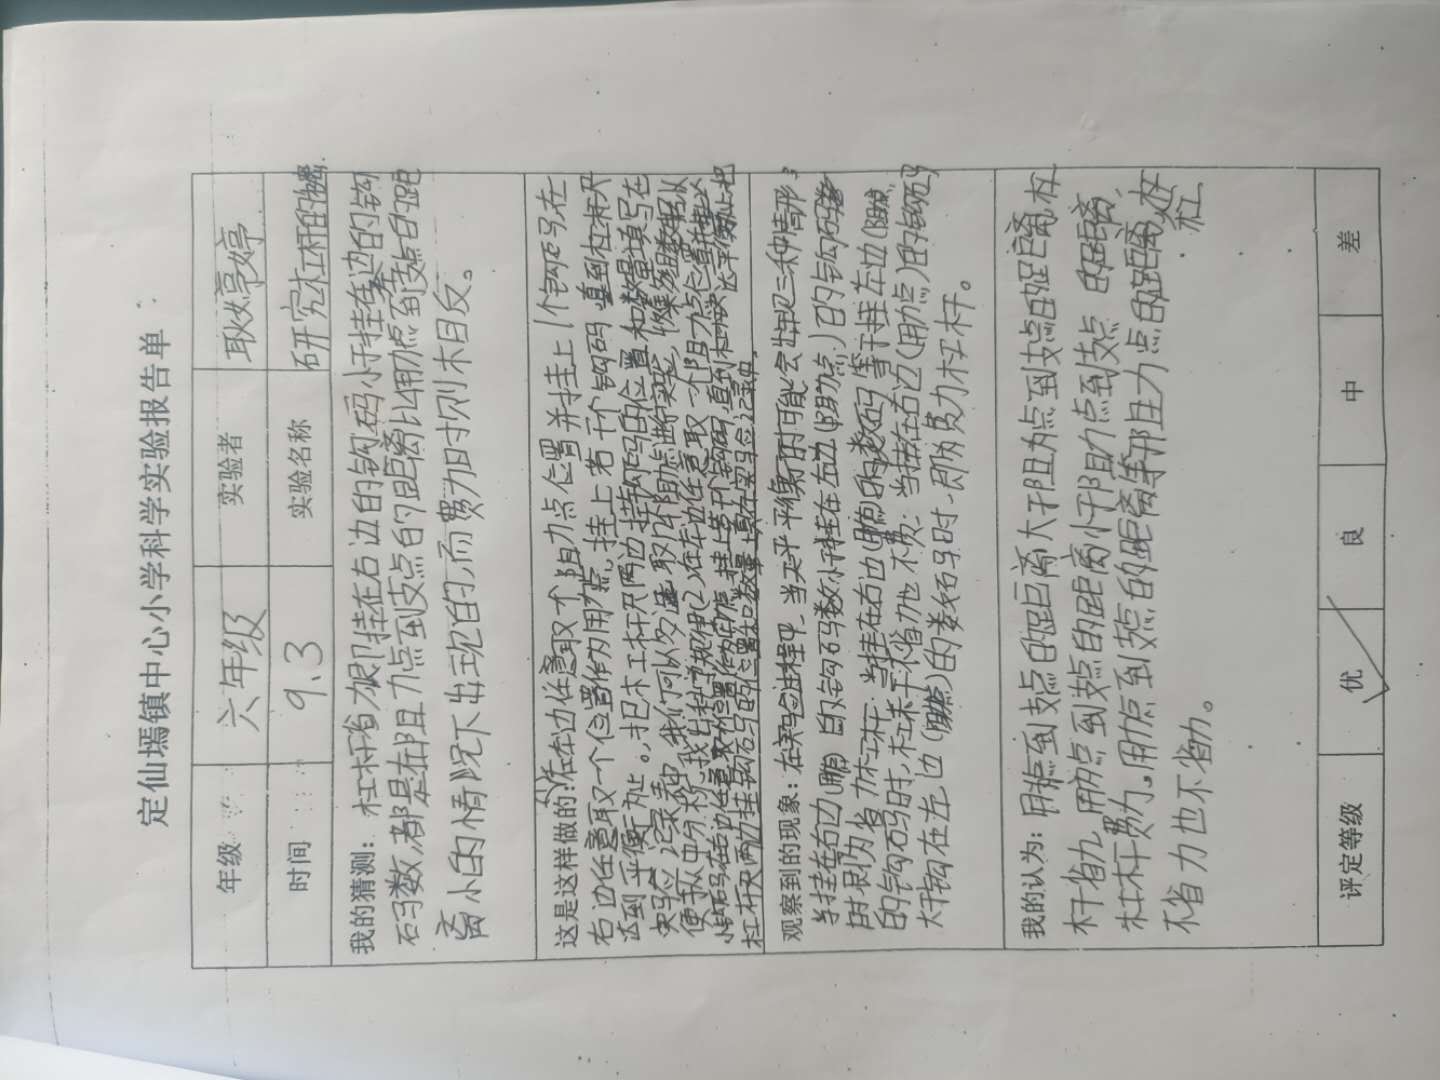 定仙墕镇中心小学科学实验报告单
年级 六年级 实验者 耿婷婷
时间 9.3 实验名称 研究杠杆的
我的猜测：杠杆省力很挂在右边的钩码小于挂在边的钩
码数都是在阻力点到支点的距离比用力点到支点的距
离小的情况下出现的,而费力时则相反。
这是这样做的:(1)在左边任意取个阻力点位置并挂上1个钩码在
右边任意取一个位置作为用力点,挂上若干个钩码 直到杠杆尺
达到平衡为止。把木工杆尺两边挂钩码的位置和数量填写在
实验记录表中 我们可以多选取几个阻力点做实验,收集数据从
便于从中分析,找出科学规律(2)在左边任意取一个阻力点位置并挂
小钩码在右边任意取个位置作为用力点 挂上若干个钩码,直到杠杆尺达平衡为止把
杠杆尺两边挂钩码的位置和数量填在实验记录中
观察到的现象：在实验过程中,当天平平衡时可能会出现三种情形:
当挂在右边 的钩码数小于挂在左边(阻力点)的钩码
时 即为省力杠杆:当挂在右边
的钩码时,杠杆不省力也不费:当挂在右边(用力点)的钩码
大于钩在左边 的数码时,即为费力杠杆。
我的认为：用力点到支点的距离大于阻力点到支点的距离杠
杆省力,用力点到支点的距离小于阻力点到支点的距离,
杠杆费力。用力点到支点的距离等于阻力点的距离 杠杆
不省力也不省力。
评定等级 优 良 中 差